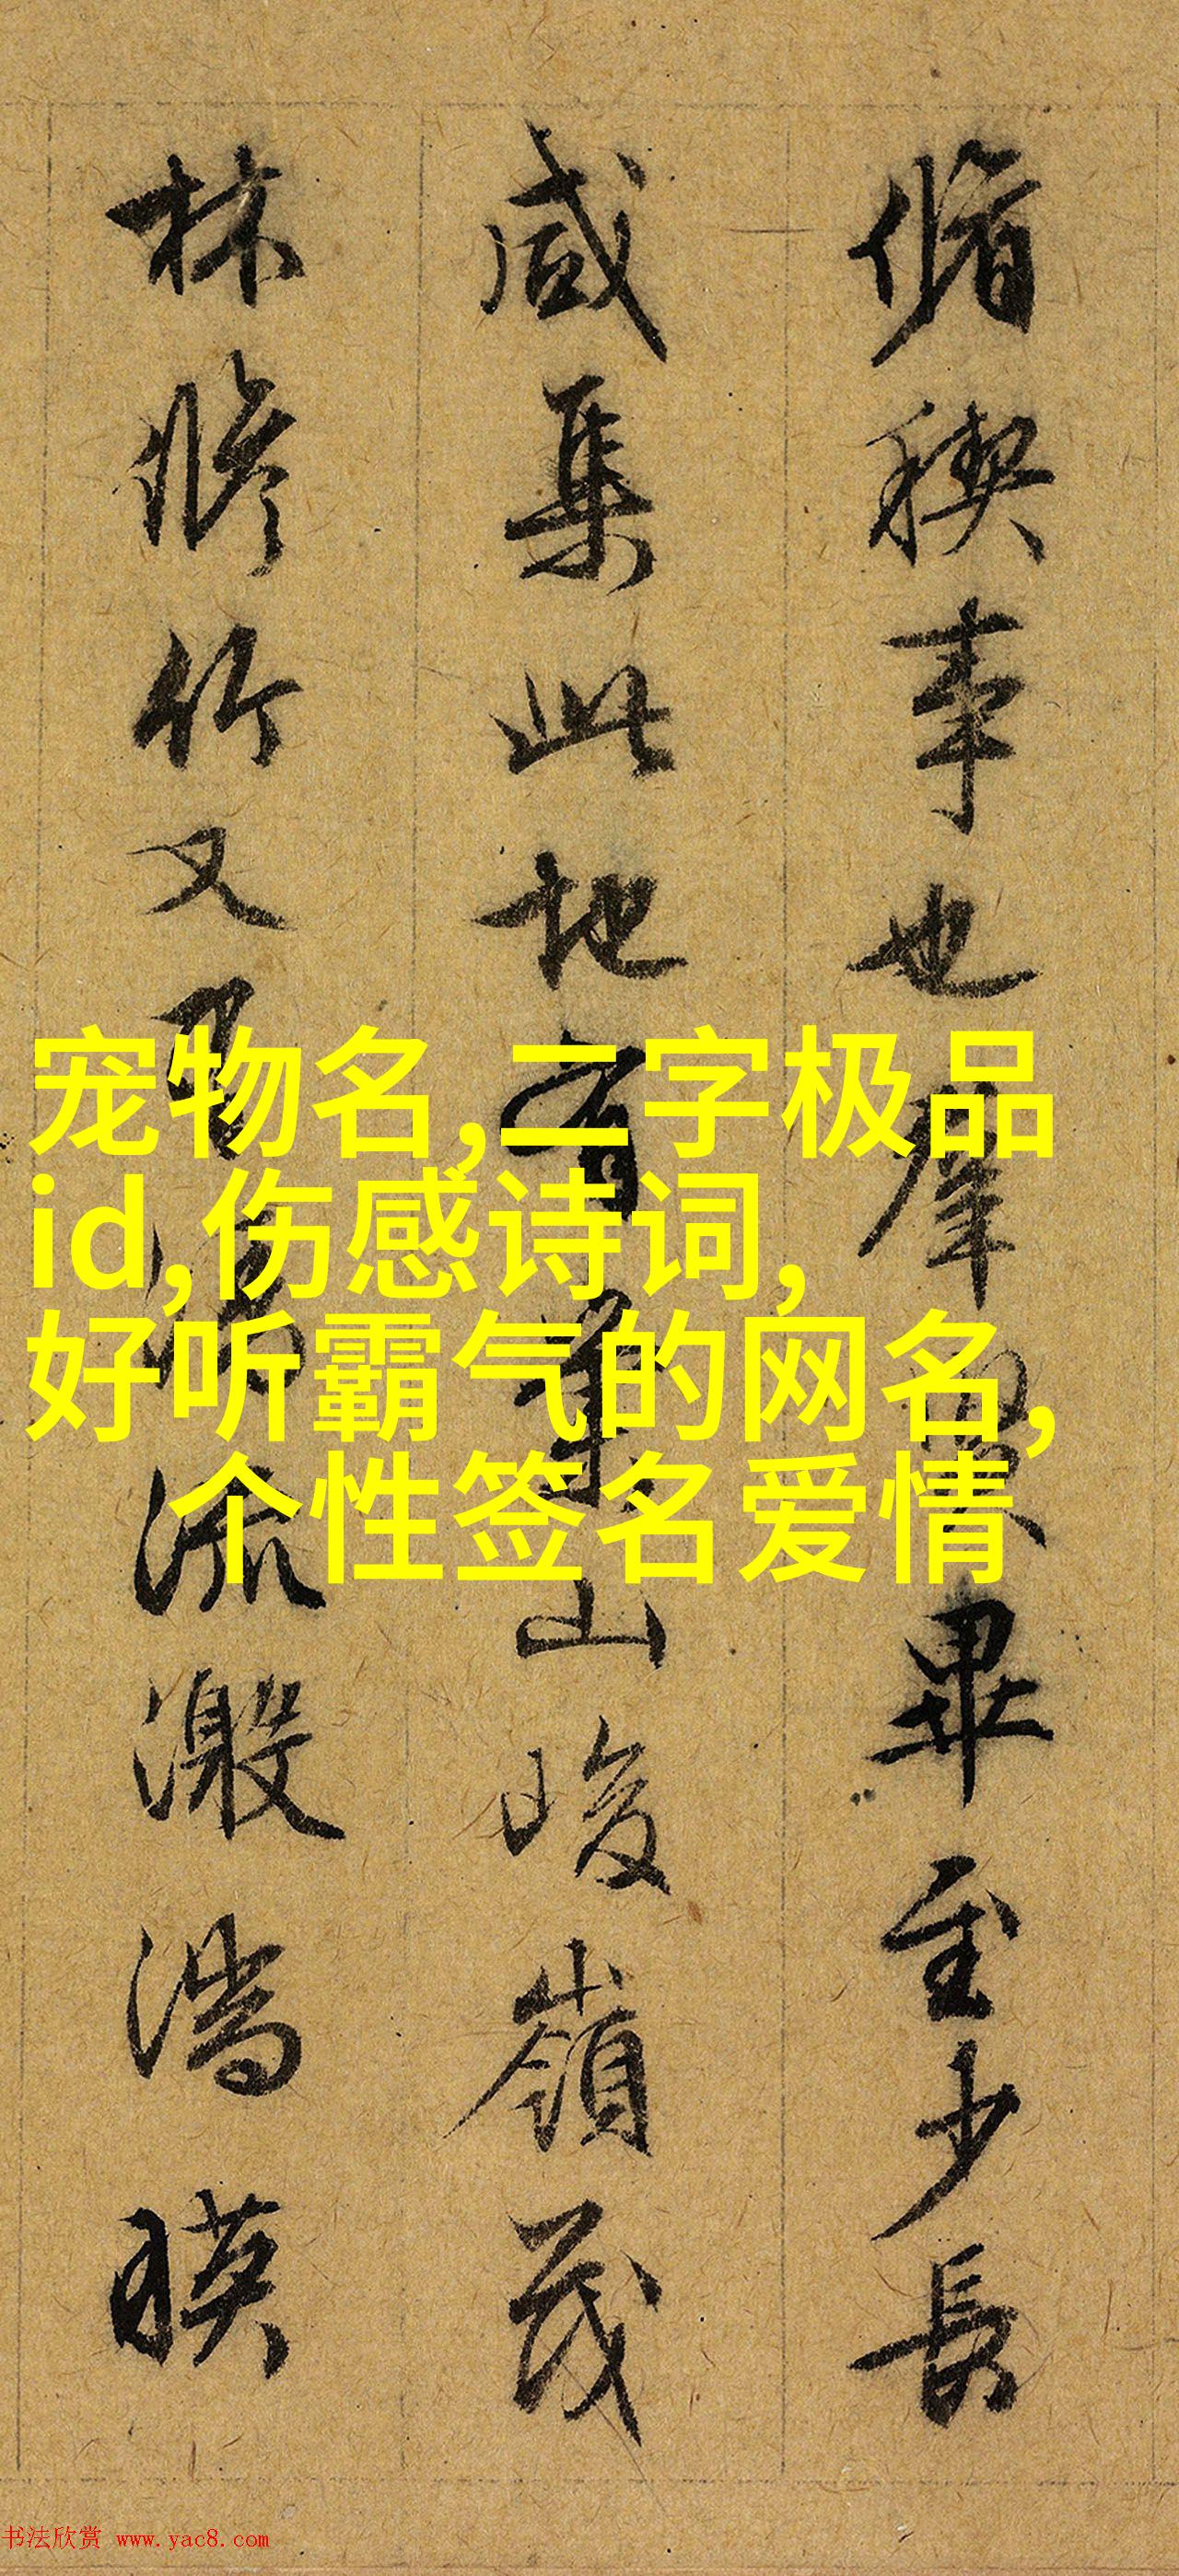 脩稧事也羣賢畢至少長
咸集此地有崇山峻嶺茂
林脩竹又有清流激湍暎
宠物名,二字极品
id,伤感诗词,
好听霸气的网名,
个性签名爱情
书法欣赏 www.yac8.com